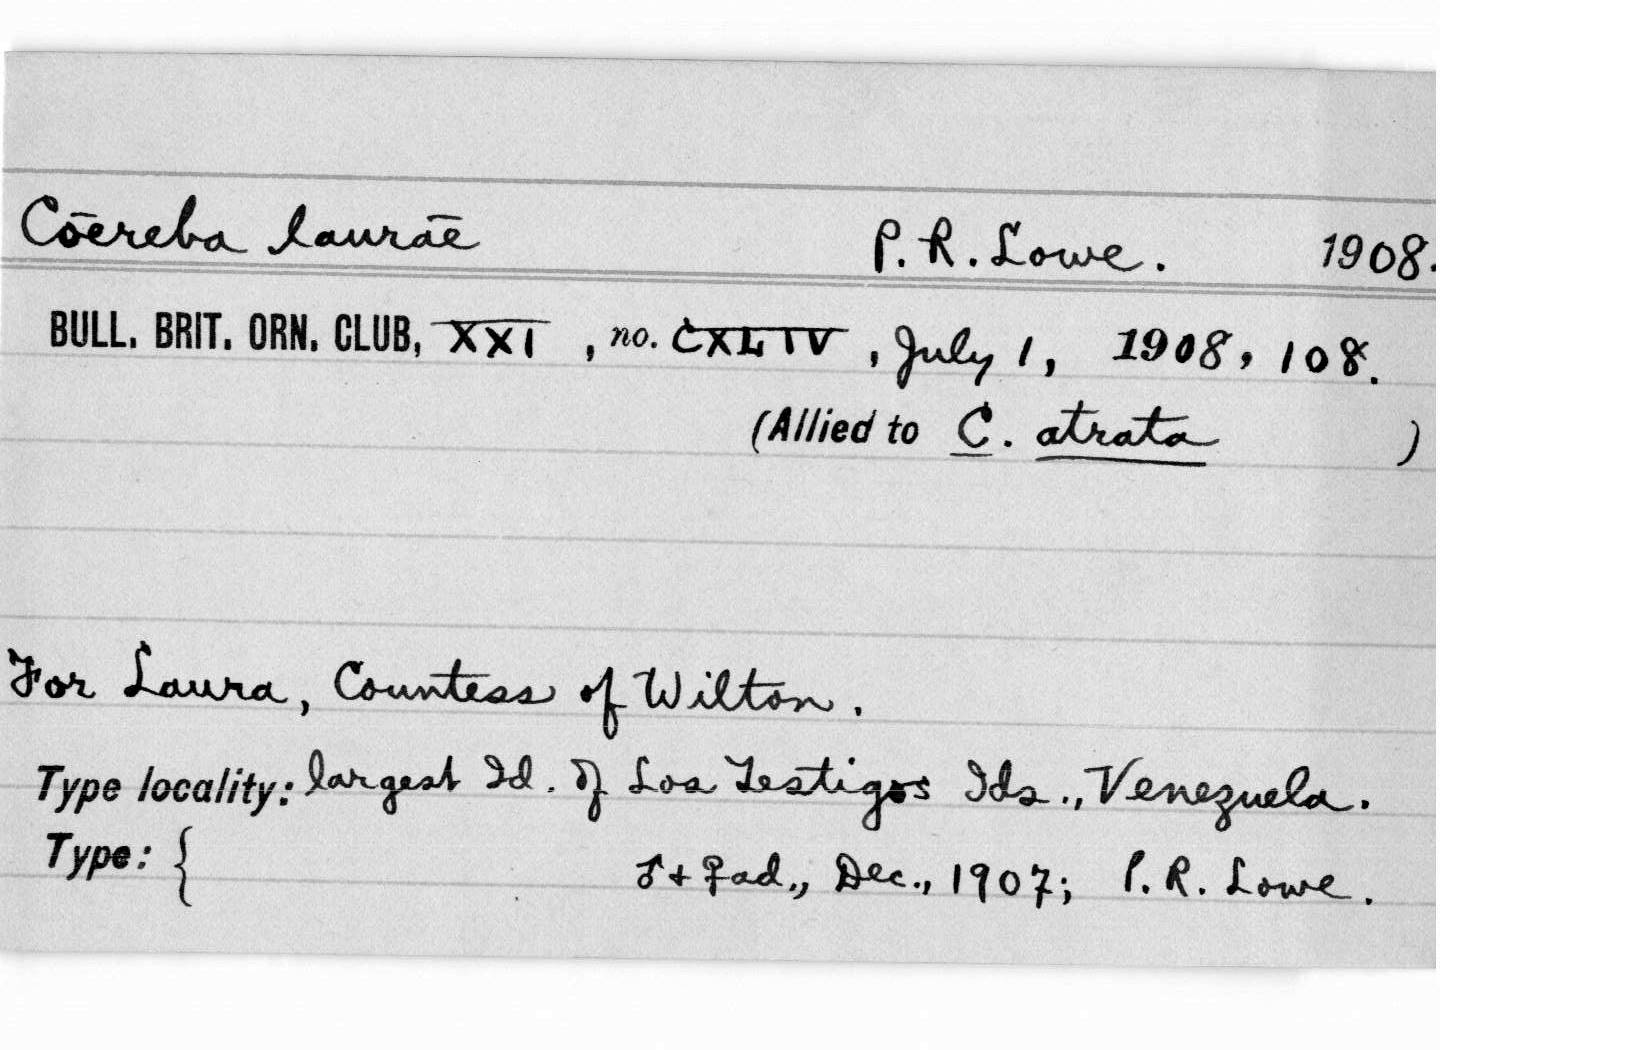 Cōereba laurāe P. R. Lowe. 1908.
BULL. BRIT. ORN. CLUB, XXI, no. CXLIV, July 1, 1908, 108.
(Allied to C. atrata )
For Laura, Countess of Wilton.
Type locality: largest Id. of Los Testigos Ids., Venezuela.
Type: { ♂ + ♀ ad., Dec., 1907; P. R. Lowe.